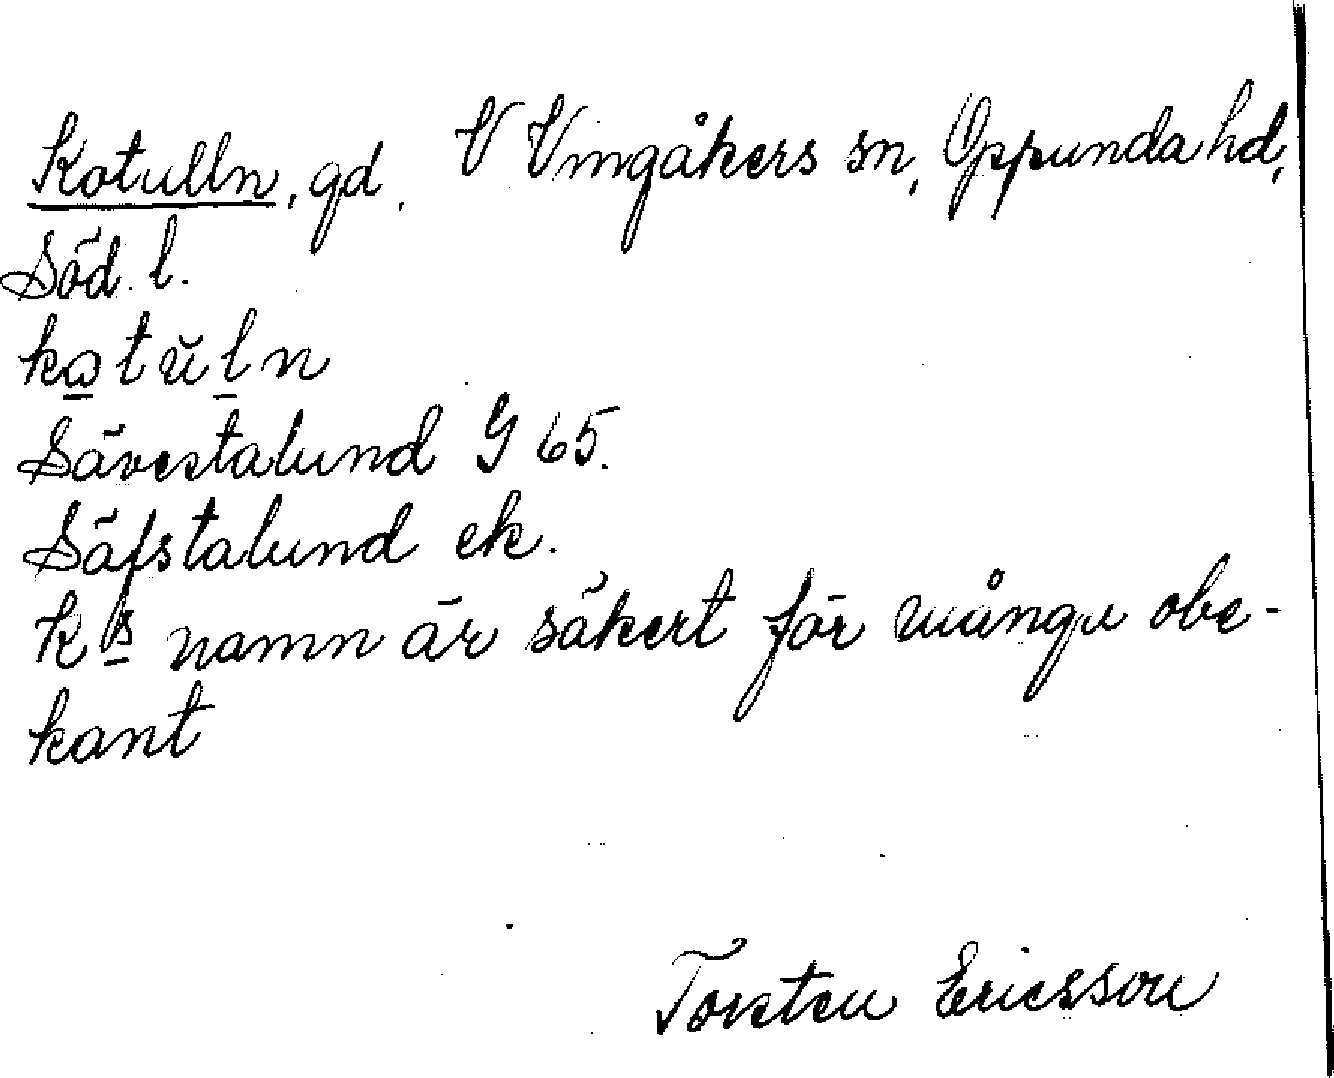 Kotulln, gd. V Vingåkers sn, Oppunda hd,
Söd. l.
kotŭln
Sävestalund G 65.
Säfstalund ek.
K:s namn är säkert för många obe-
kant
Torsten Ericsson